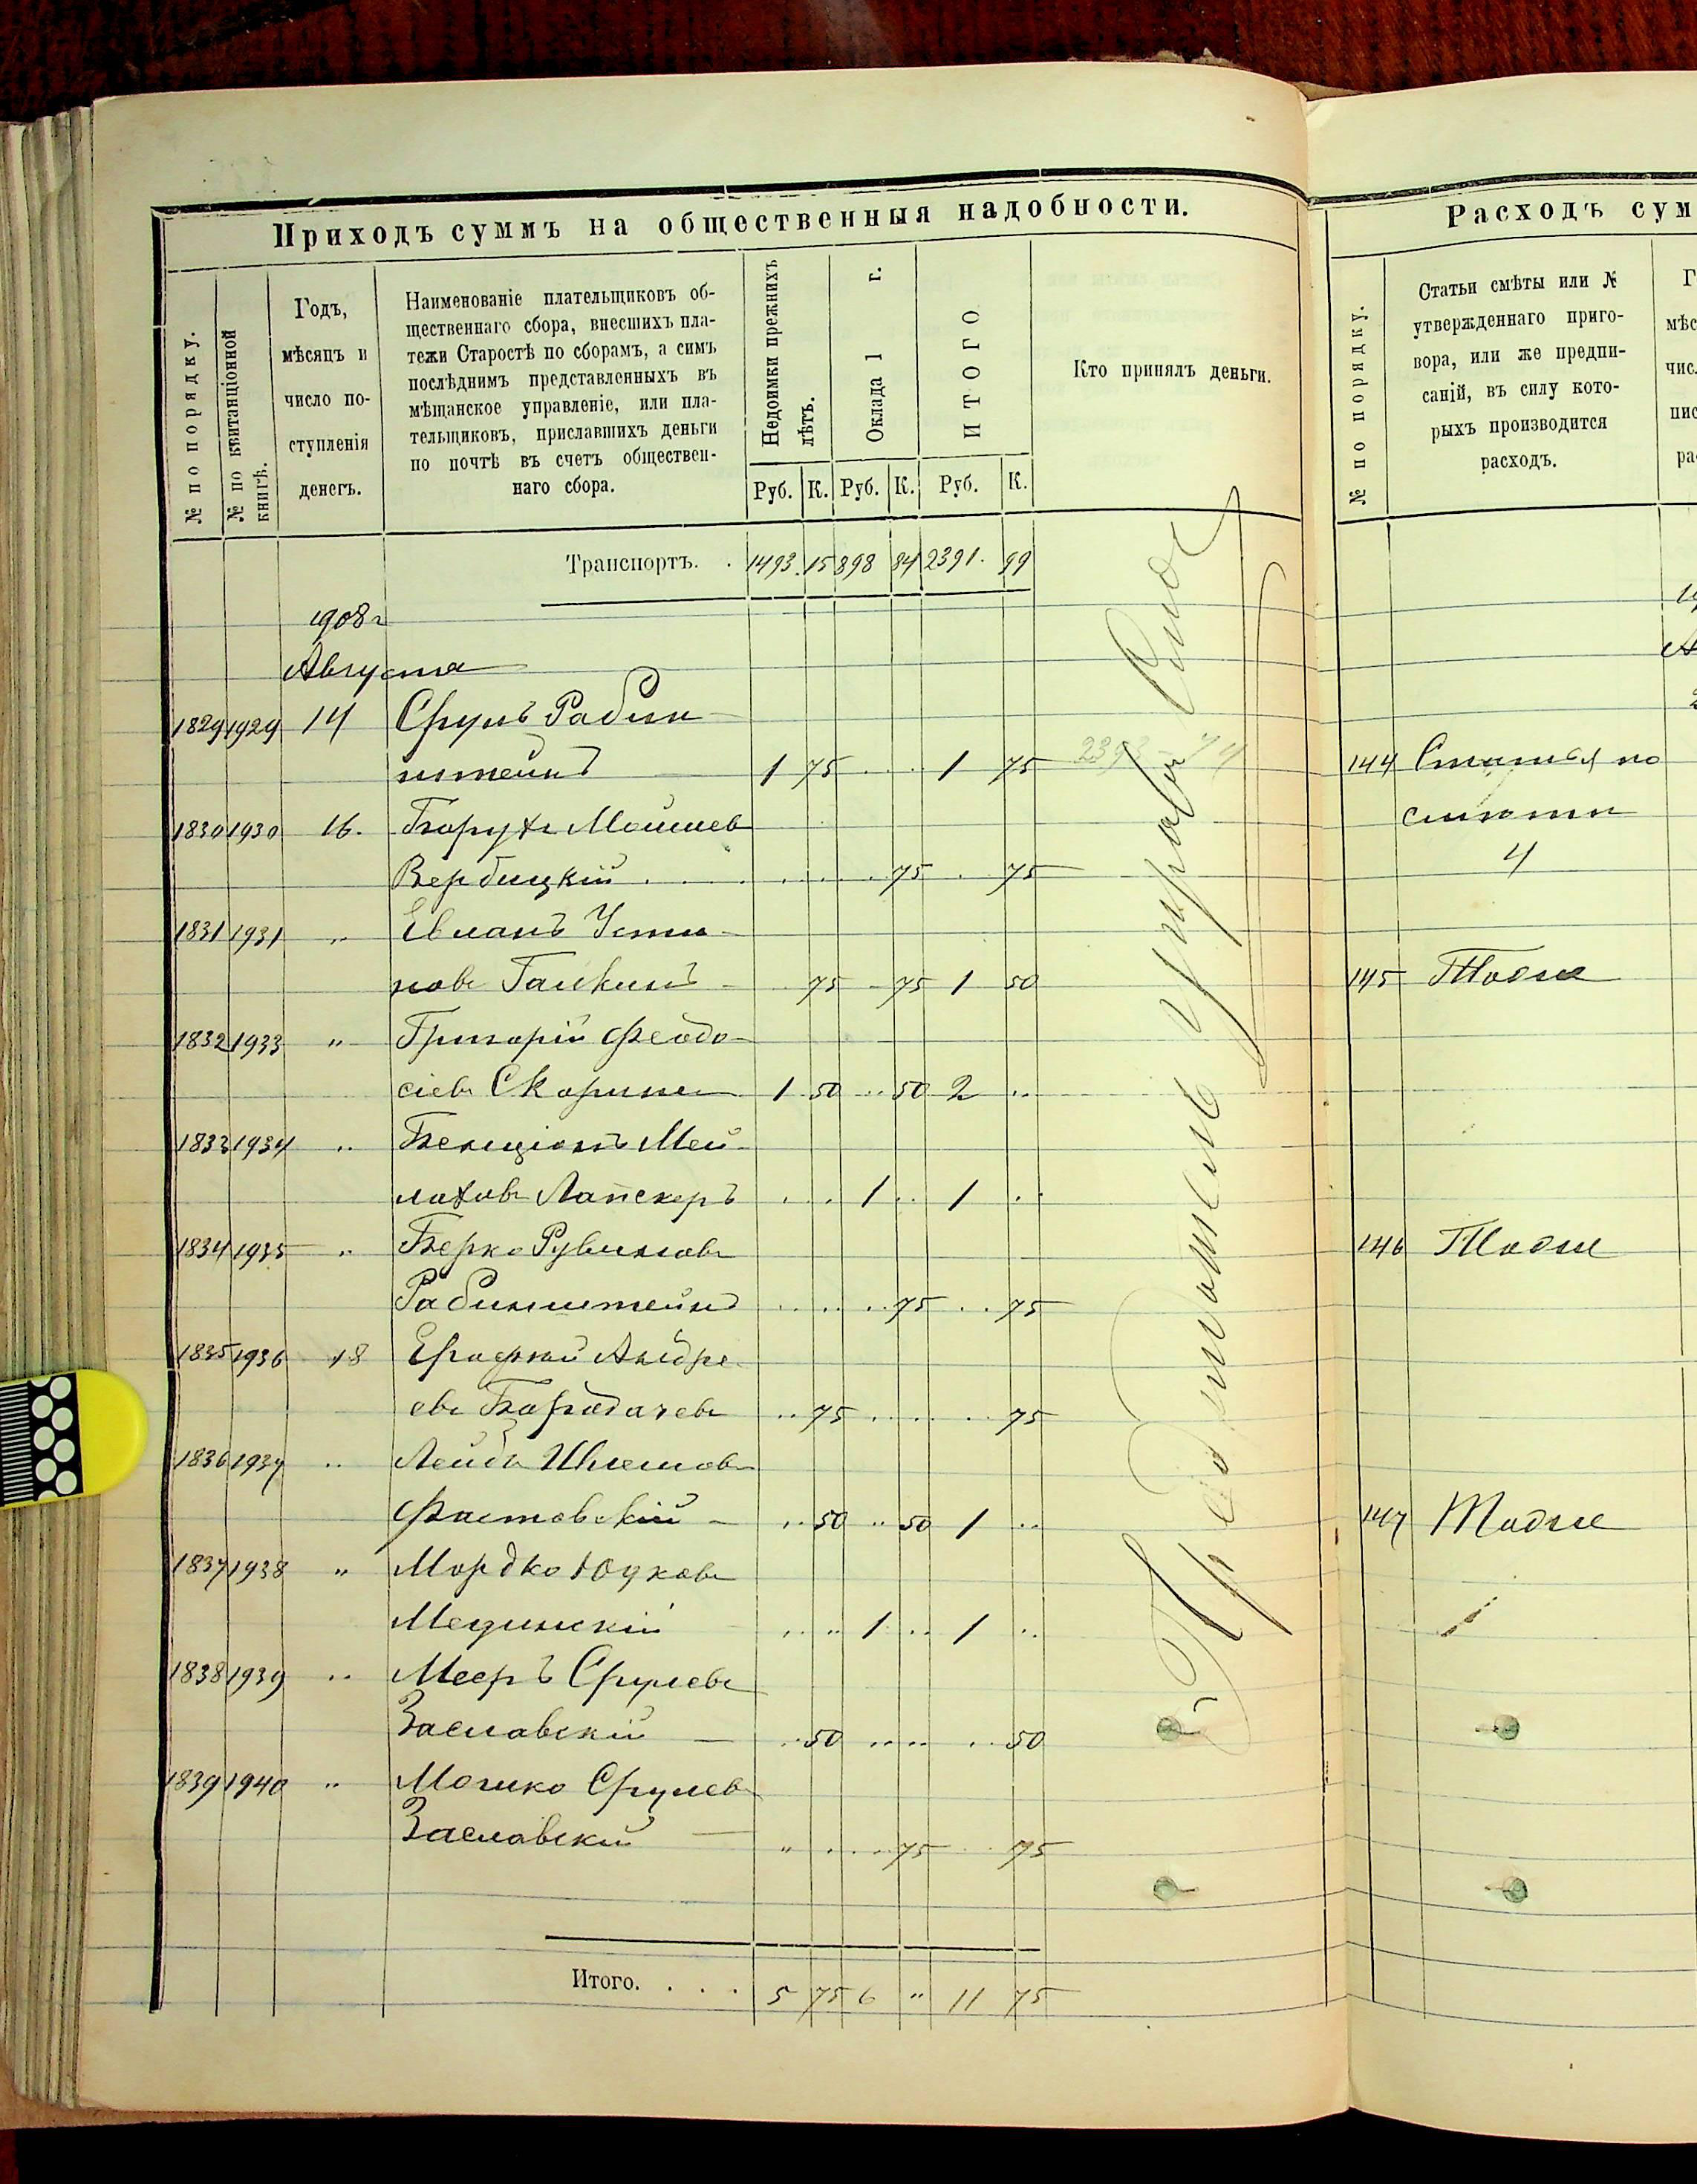 Приходъ суммъ на общественныя надобности.
№ по порядку.
№ по квитанціонной книгѣ.
Годъ,
мѣсяцъ и
число по-
ступленія
денегъ.
Наименованіе плательщиковъ об-
щественнаго сбора, внесшихъ пла-
тежи Старостѣ по сборамъ, а симъ
послѣднимъ представленныхъ въ
мѣщанское управленіе, или пла-
тельщиковъ, приславшихъ деньги
по почтѣ въ счетъ обществен-
наго сбора.
Недоимки прежнихъ
лѣтъ.
Оклада 1 г.
ИТОГО
Кто принялъ деньги.
Руб. К. Руб. К. Руб. К.
Транспортъ. . 1493. 15 898 84 2391. 99
1908 г
Августа
1829 1929 14 Сруль Рабин
штейнъ 1 75 .. .. 1 75
1830 1930 16. Борухъ Мошиев
Вербицкій . . . . . . 75 . 75
1831 1931 " Евлапъ Усти
нов Галкинъ 75 75 1 50
1832 1933 " Григорій Феодо-
сіев 1 50 .. 50 2 ..
1833 1934 " Бенціонъ Мей
лахов Лапскеръ . . . 1 .. 1 ..
1834 1935 " Берко Рувинов
Рабинштейнъ .. .. .. 75 .. 75
1835 1936 18 Андре
ев Бородачев .. 75 .. .. .. 75
1836 1937 " Лейба Шлемов
Фастовскій .. 50 .. 50 1 ..
1837 1938 " Мордко Юдков
.. .. 1 .. 1 ..
1838 1939 " Мееръ Срулев
Заславскій .. 50 .. .. .. 50
1839 1940 " Мошко Срулев
Заславскій " .. .. 75 .. 75
Итого. . . . 5 75 6 " 11 75
Расходъ сум
№ по порядку.
Статьи смѣты или №
утвержденнаго приго-
вора, или же предпи-
саній, въ силу кото-
рыхъ производится
расходъ.
Г
мѣс
чис
пис
ра
144 Статья по
смѣтѣ
4
145 Тоже
146 Тоже
147 Тоже